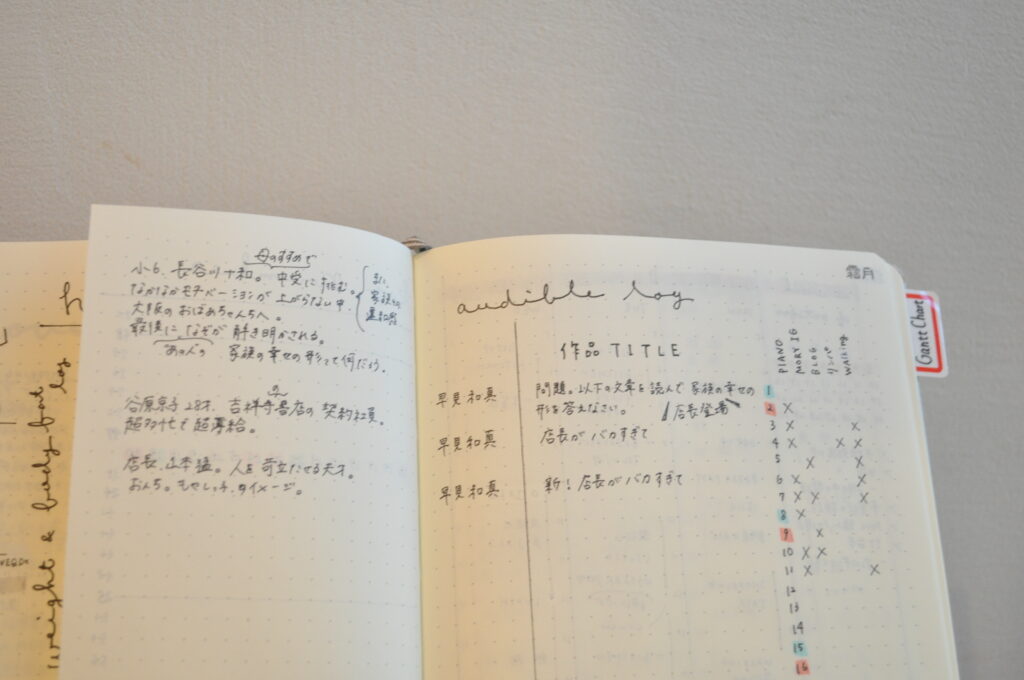 weight & body fat log
母のすすめで
小6、長谷川十和。中受に挑む。
なかなかモチベーションが上がらない中
大阪のおばあちゃんちへ。
最後に、なぞが解き明かされる。
あの人の 家族の幸せの形って何だろう。
まに、
家族の
違和感
の
谷原京子28才、吉祥寺書店の契約社員。
超多忙で超薄給。
店長、山本猛。人を苛立たせる天才。
おんち。もやしっ子、のイメージ。
霜月
audible log
作品 TITLE
PIANO
MORY IG
BLOG
リンパ
Walking
早見和真 問題。以下の文章を読んで家族の幸せの
形を答えなさい。 店長登場
早見和真 店長がバカすぎて
早見和真 新!店長がバカすぎて
1
2 X
3 X X
4 X X X
5 X X
6 X X
7 X X X
8 X
9 X
10 X X
11 X X
12
13
14
15
16
Gantt Chart